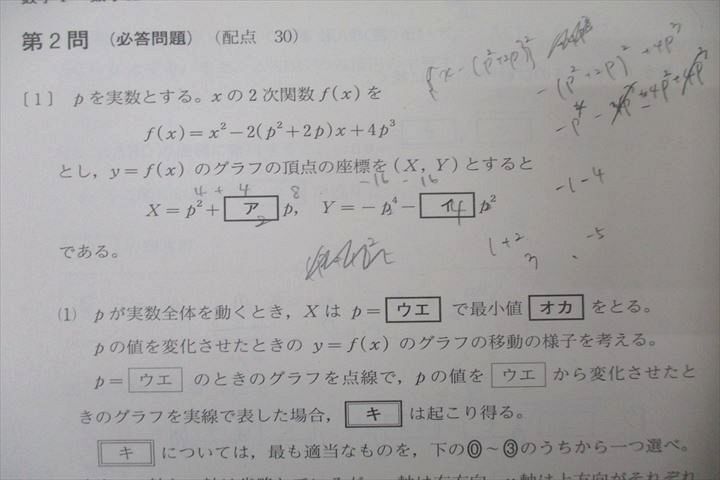 第2問 (必答問題) (配点 30)
{x-(p²+2p)}²
-(p²+2p)²+4p³
〔1〕 pを実数とする。xの2次関数f(x)を
f(x)=x²-2(p²+2p)x+4p³
とし,y=f(x)のグラフの頂点の座標を(X, Y)とすると
4+4 8 -16-16 -1-4
X=p²+ ア p, Y=-p⁴- イ p²
2 4
1+2 -5
3
である。
(1) pが実数全体を動くとき,Xはp= ウエ で最小値 オカ をとる。
pの値を変化させたときのy=f(x)のグラフの移動の様子を考える。
p= ウエ のときのグラフを点線で,pの値を ウエ から変化させたと
きのグラフを実線で表した場合, キ は起こり得る。
キ については,最も適当なものを,下の⓪~③のうちから一つ選べ。